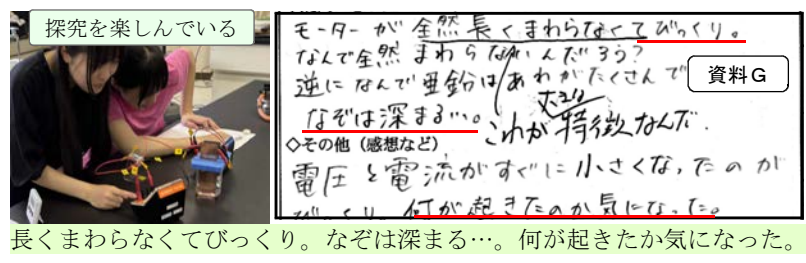 探究を楽しんでいる
モーターが全然長くまわらなくてびっくり。
なんで全然まわらないんだろう?
逆になんで亜鉛はあわがたくさんで
資料G
なぞは深まる…。
これが特徴なんだ.
◇その他(感想など)
電圧と電流がすぐに小さくなったのが
びっくり.何が起きたのか気になった。
長くまわらなくてびっくり。なぞは深まる…。何が起きたか気になった。